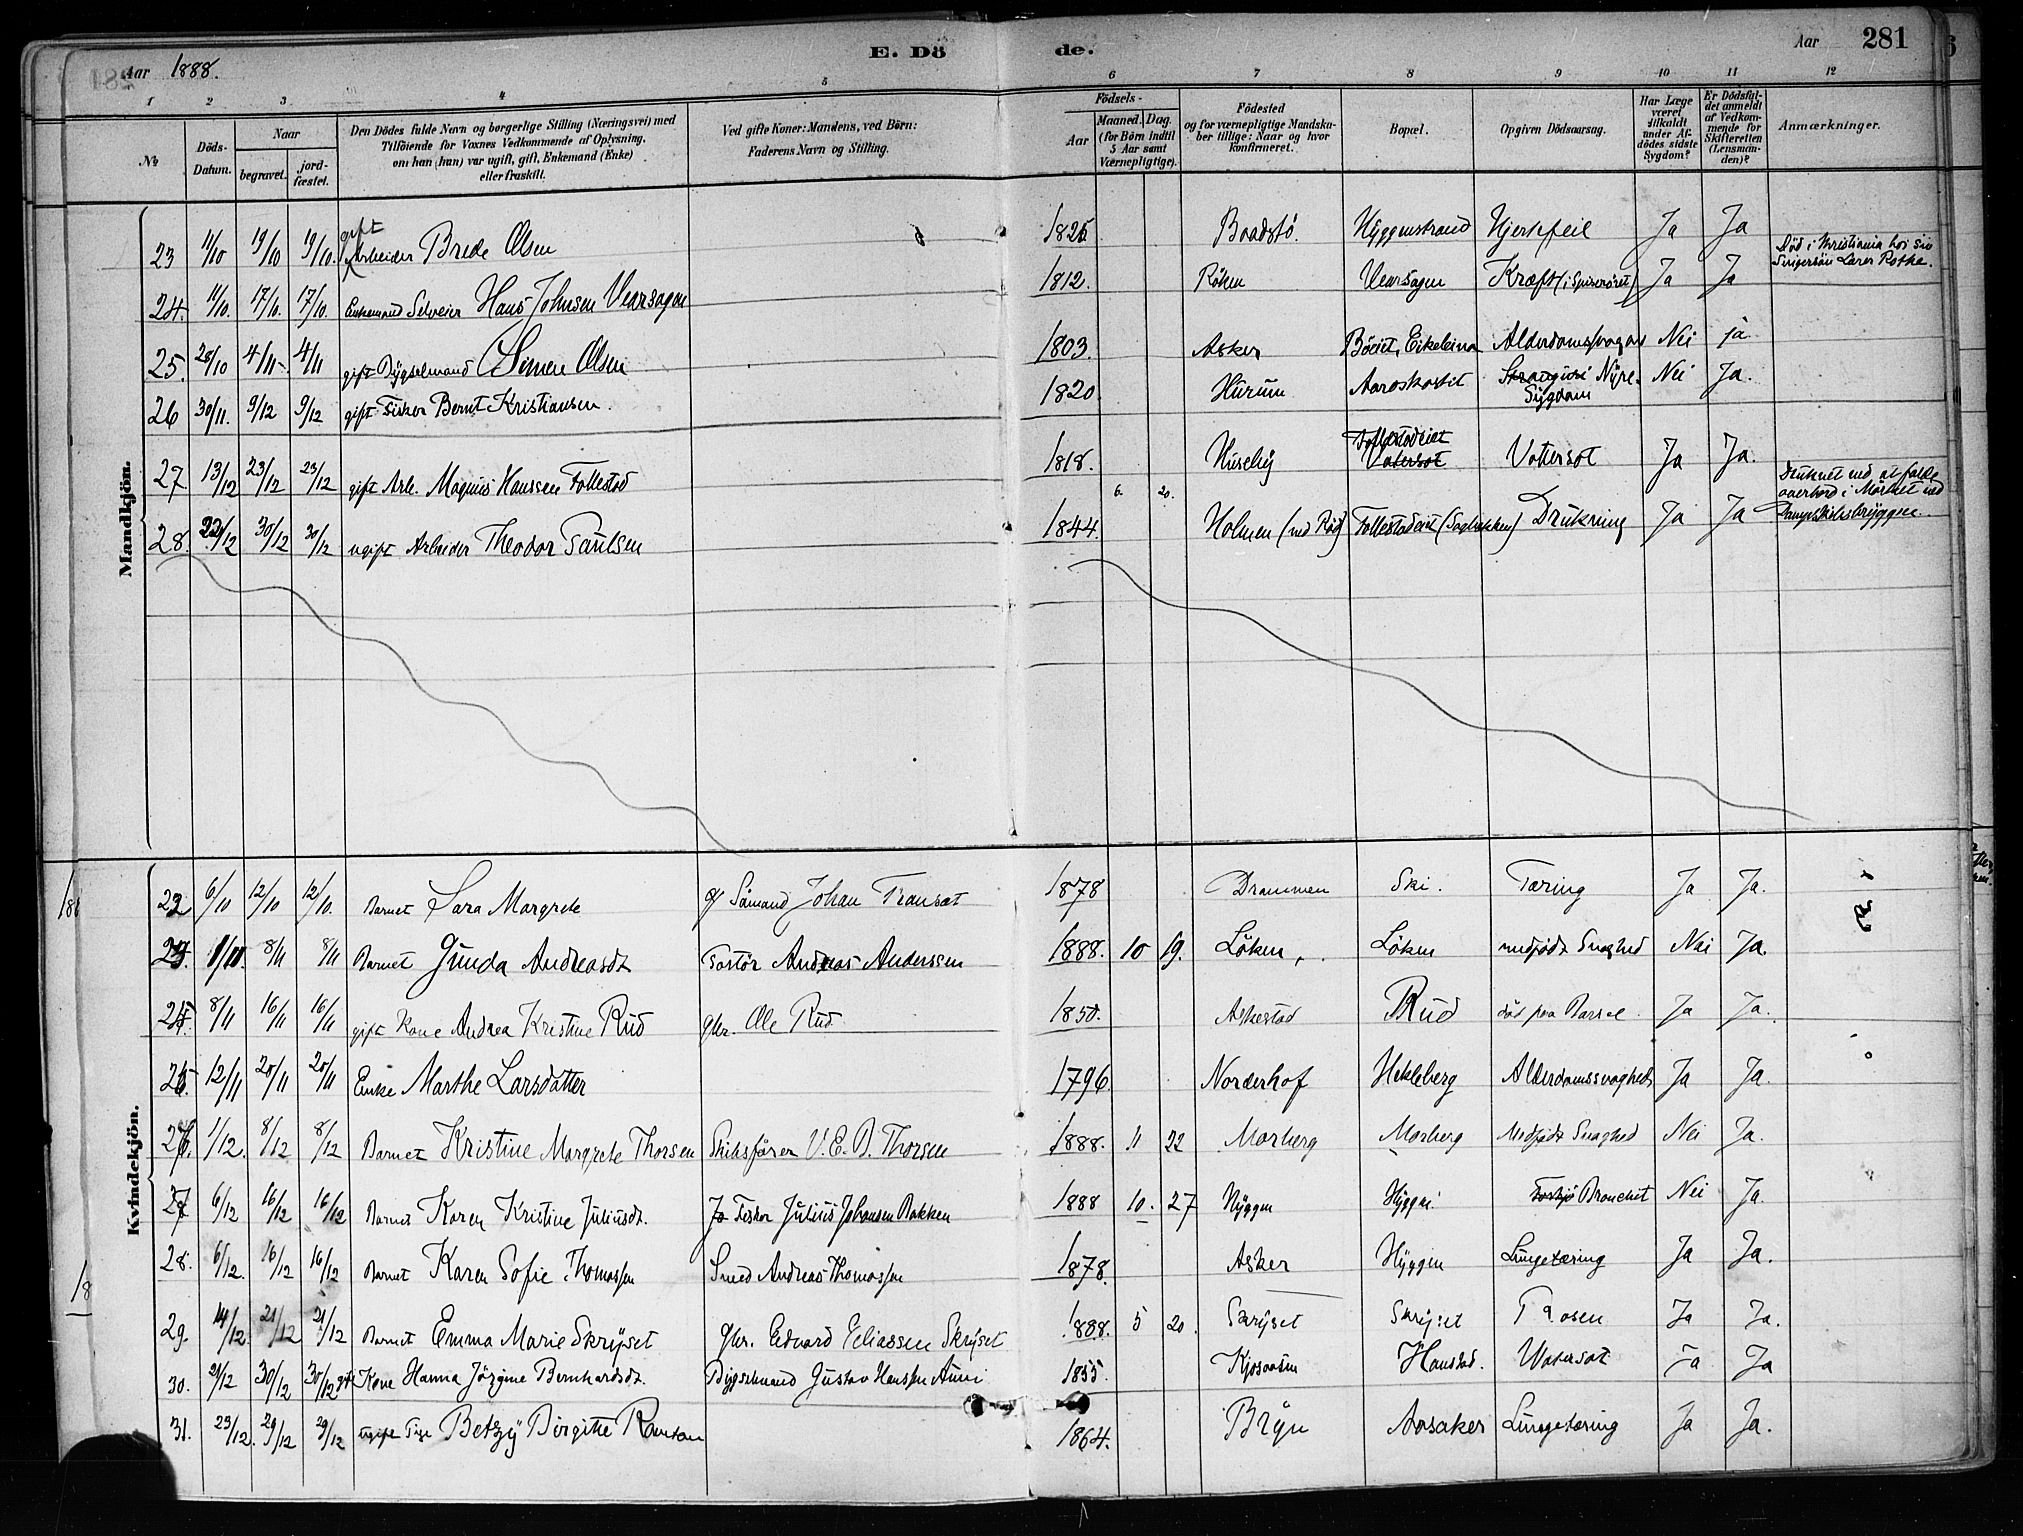 Aar 1888.
E. Döde.
Aar 281
1 2 3 4 5 6 7 8 9 10 11 12
No
Döds-Datum.
Naar begravet. jordfæstet.
Den Dödes fulde Navn og borgerlige Stilling (Næringsvei) med Tilföiende for Voxnes Vedkommende af Oplysning, om han (hun) var ugift, gift, Enkemand (Enke) eller fraskilt.
Ved gifte Koner: Mandens, ved Börn: Faderens Navn og Stilling.
Födsels- Aar Maaned. Dag. (for Börn indtil 5 Aar samt Værnepligtige).
Födested og for værnepligtige Mandskaber tillige: Naar og hvor konfirmeret.
Bopæl.
Opgiven Dödsaarsag.
Har Læge været tilkaldt under Afdödes sidste Sygdom?
Er Dödsfaldet anmeldt af Vedkommende for Skifteretten (Lensmanden)?
Anmærkninger.
Mandkjön.
23 11/10 19/10 19/10. gift Arbeider Brede Olsen 1825 Baadstö. Hyggenstrand Hjertefeil Ja Ja Död i Kristiania hos sin Svigersön Lærer Rothe.
24. 11/10. 17/10. 17/10. Enkemand Selveier Hans Johnsen Vearsagen 1812. Röken Vearsagen Kræft (i Spiseröret) Ja Ja
25. 28/10 4/11 4/11 gift Bygselmand Simen Olsen 1803 Asker Böeiet, Eikeleina Alderdomssvaghed Nei ja
26 30/11. 9/12 9/12 gift Fisker Bernt Kristiansen. 1820. Hurum Aaroskortit Nyre-Sygdom Nei Ja.
27 13/12 23/12 23/12 gift Arb. Magnus Hanssen Follestad 1818. Huseby Follestadeiet Vattersot Ja Ja.
28. 22/12 30/12 30/12 ugift Arbeider Theodor Paulsen 1844. 6. 20. Holmen (ved Röd) Follestadeiet (Sagbakken) Drukning Ja Ja Druknet ved at falde overbord i Mörket ved Dampskibsbryggen.
Kvindekjön.
22 6/10 12/10 12/10. Barnet Sara Margrete af Sömand Johan Transæt 1878 Drammen Ski. Tæring Ja Ja.
23. 1/11. 8/11 8/11 Barnet Gunda Andreasdt Andreas Anderssen 1888. 10 19. Löken Löken medfödt Svaghed Nei Ja.
24 8/11 16/11 16/11 gift Kone Andrea Kristine Rud gbr. Ole Rud 1850. Askestad Rud död paa Barsel Ja Ja.
25 12/11 20/11 20/11 Enke Marthe Larsdatter 1796. Norderhof Hekleberg Alderdomssvaghed Ja Ja.
26. 1/12. 8/12 8/12 Barnet Kristine Margrete Thorsen Skibsförer V. E. B. Thorsen 1888. 11 22 Morberg Morberg Medfödt Svaghed Nei Ja.
27 6/12 16/12 16/12 Barnet Karen Kristine Juliusdt. Fisker Julius Johansen Bakken 1888 10. 27 Hyggen Hyggen Bronchit Nei Ja
28. 6/12. 16/12 16/12 Barnet Karen Sofie Thomassen Smed Andreas Thomassen 1878. Asker Hyggen Lungetæring Ja Ja.
29. 14/12. 21/12 21/12 Barnet Emma Marie Skryset gbr. Edvard Eeliassen Skryset 1888. 5 20. Skryset Skryset Ja Ja.
30. 21/12 30/12 30/12 gift Kone Hanna Jörgine Bernhardsdt. Bygselmand Gustav Hanssen 1855. Kjosaasen Hanstad. Vatersot Ja Ja
31. 23/12. 29/12 29/12 ugift Pige Betzy Birgitte 1864. Bryn Aasaker Lungetæring Ja Ja.